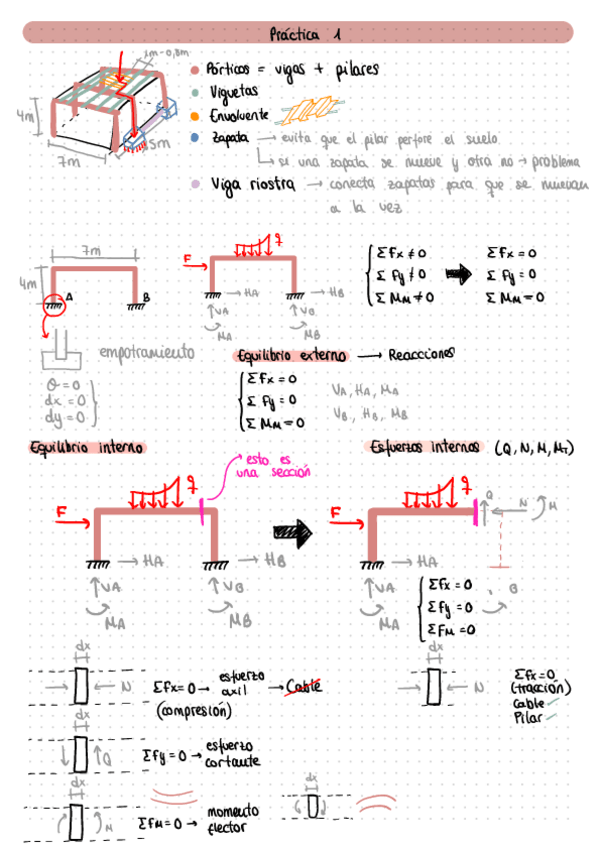 Práctica 1
1m-0,8m
Pórticos = vigas + pilares
Viguetas
Envolvente
Zapata → evita que el pilar perfore el suelo
→ si una zapata se mueve y otra no → problema
Viga riostra → conecta zapatas para que se muevan
a la vez
4m
7m
5m
7m
4m
A
B
F
q
HA
HB
VA
VB
MA
MB
Σfx ≠ 0
Σfy ≠ 0
ΣMM ≠ 0
Σfx = 0
Σfy = 0
ΣMM = 0
empotramiento
θ = 0
dx = 0
dy = 0
Equilibrio externo → Reacciones
Σfx = 0
Σfy = 0
ΣMM = 0
VA, HA, MA
VB, HB, MB
Equilibrio interno
esto es
una sección
Esfuerzos internos (Q, N, M, MT)
F
q
HA
HB
VA
VB
MA
MB
F
q
Q
N
M
HA
VA
MA
B
Σfx = 0
Σfy = 0
ΣfM = 0
dx
N
Σfx=0 → esfuerzo
axil
(compresión)
→ Cable
dx
N
Σfx=0
(tracción)
Cable ✓
Pilar ✓
dx
Q
Σfy=0 → esfuerzo
cortante
dx
M
ΣfM=0 → momento
flector
dx